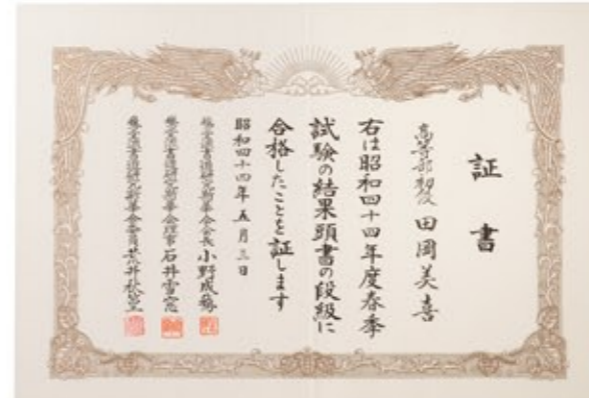 証書
高等部初段 田岡美喜
右は昭和四十四年度春季
試験の結果頭書の段級に
合格したことを証します
昭和四十四年五月三日
会長 小野成鵞
理事 石井雪窓
委員 荒井秋